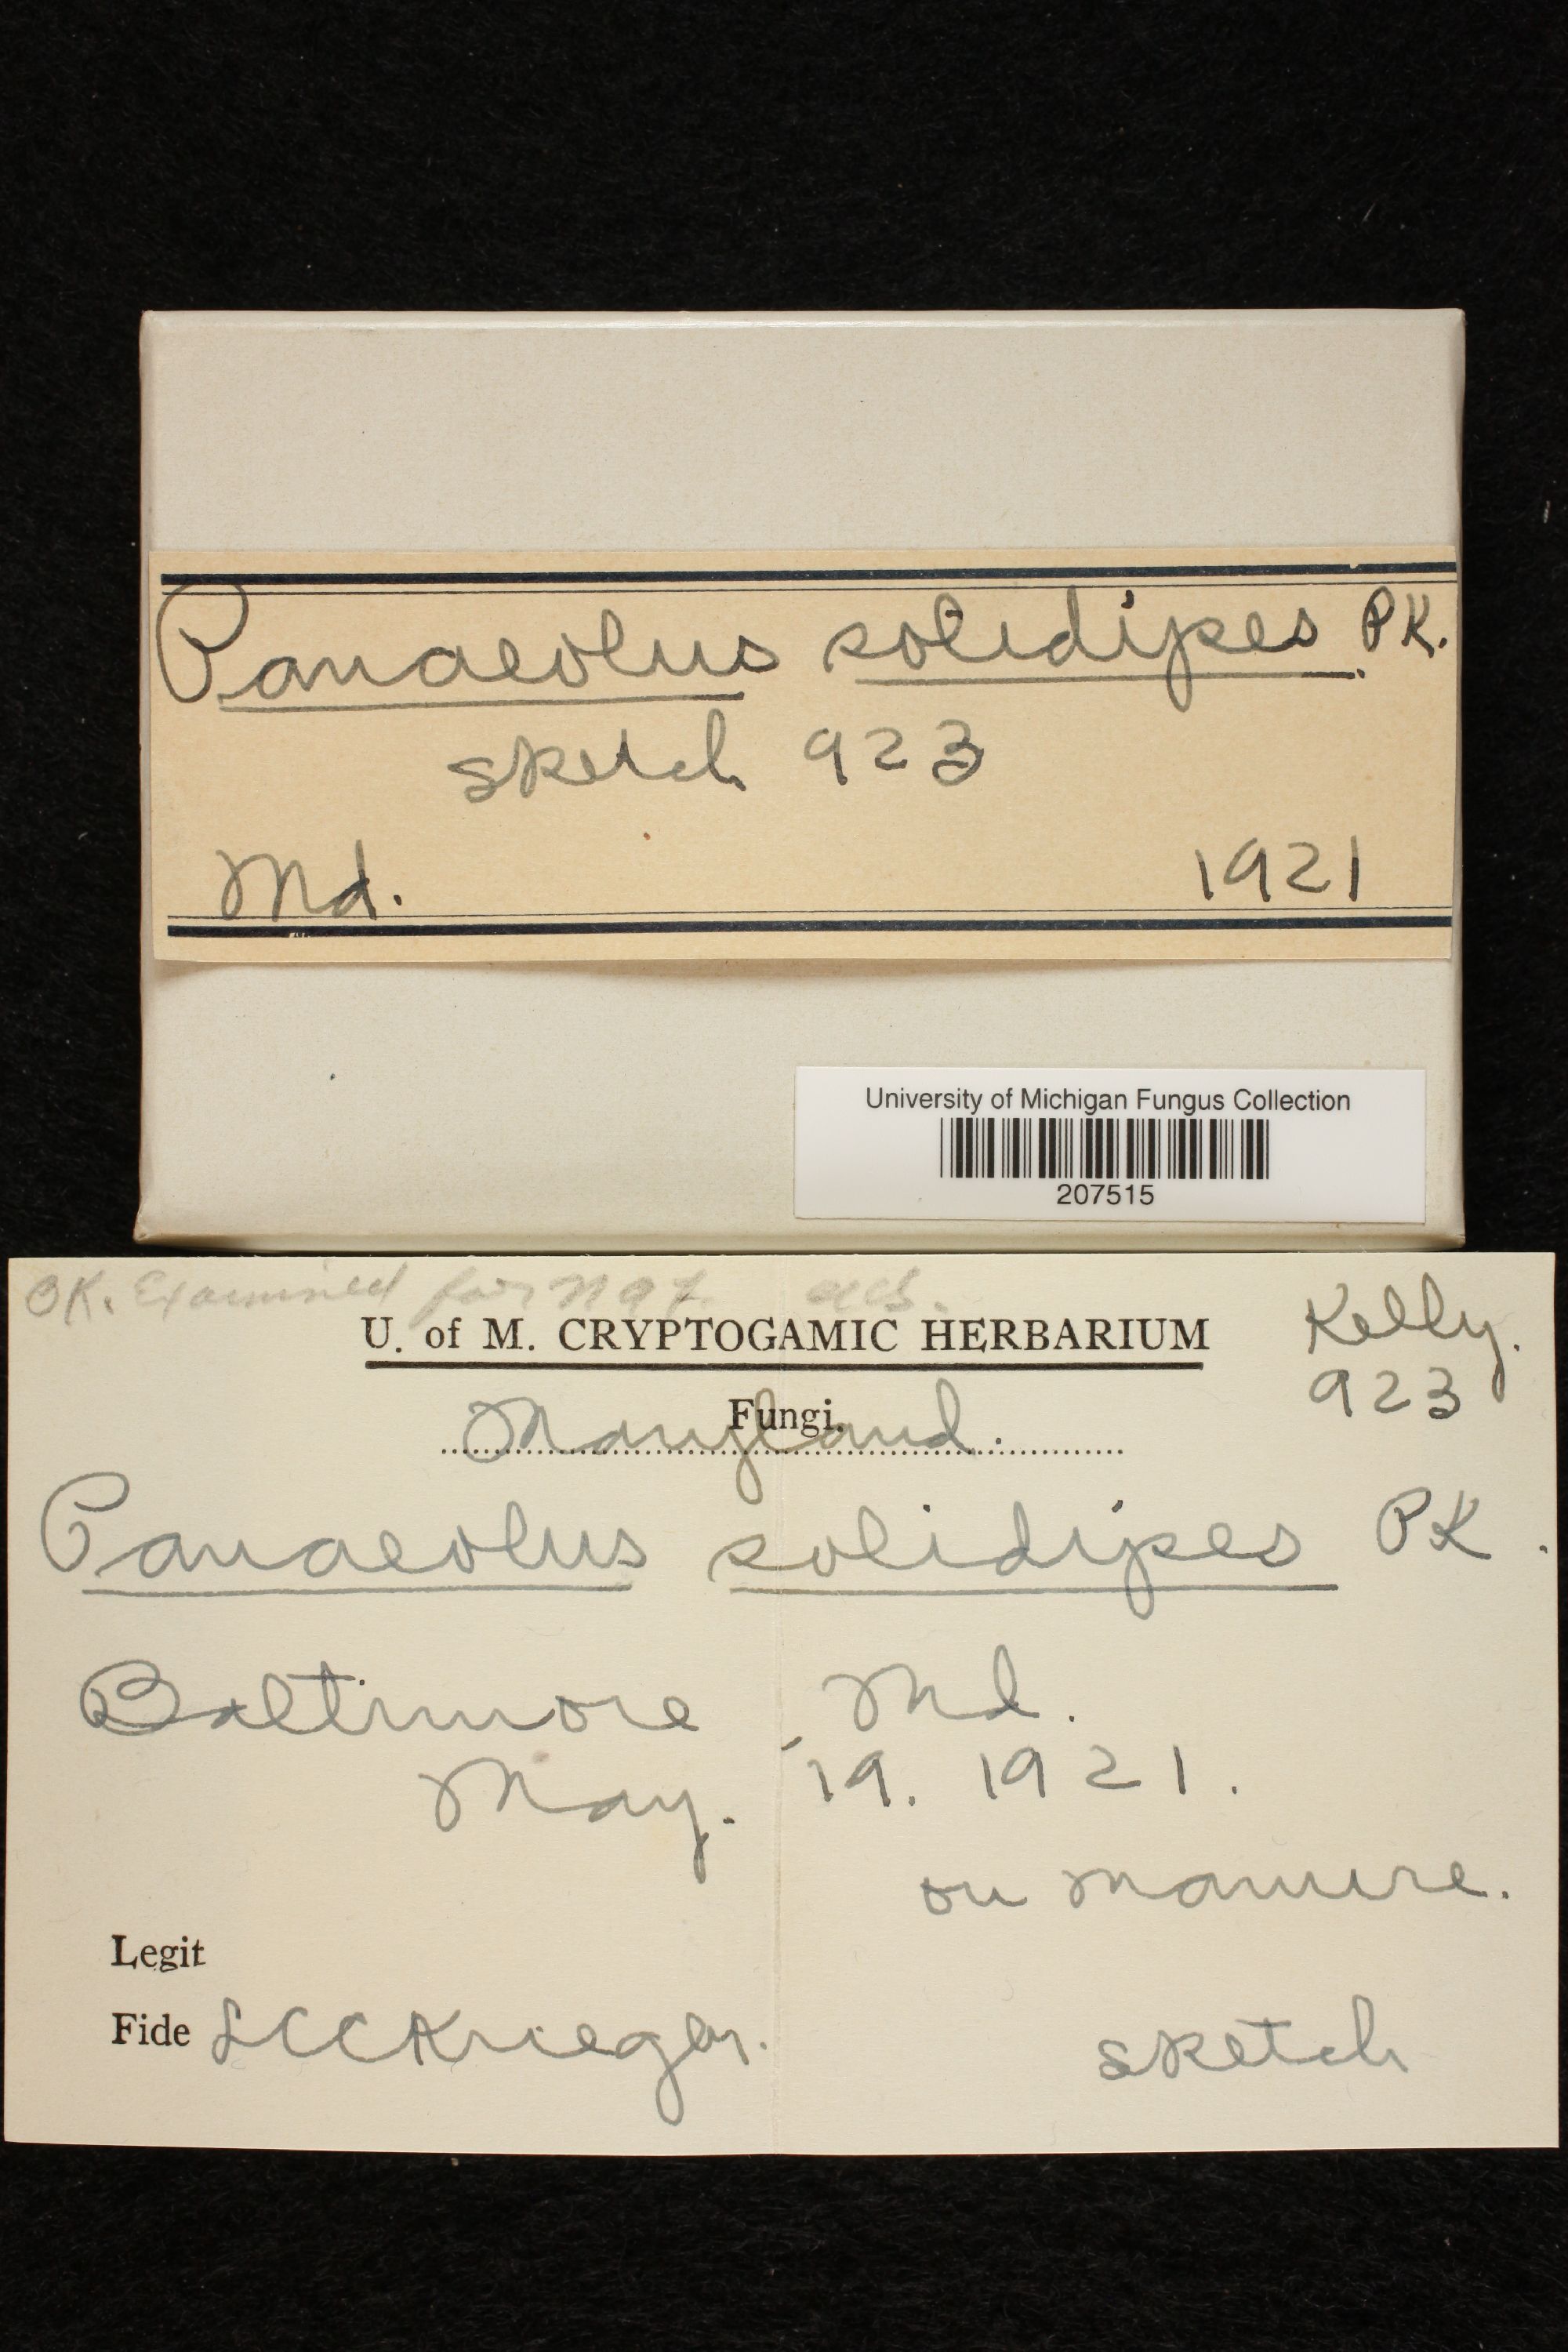 Panaeolus solidipes PK.
sketch 923
Md. 1921
University of Michigan Fungus Collection
207515
OK. Examined for
U. of M. CRYPTOGAMIC HERBARIUM
Kelly.
923
Fungi.
Maryland.
Panaeolus solidipes PK.
Baltimore Md.
May. 19. 1921.
on manure.
Legit
Fide LCCKrieger.
sketch